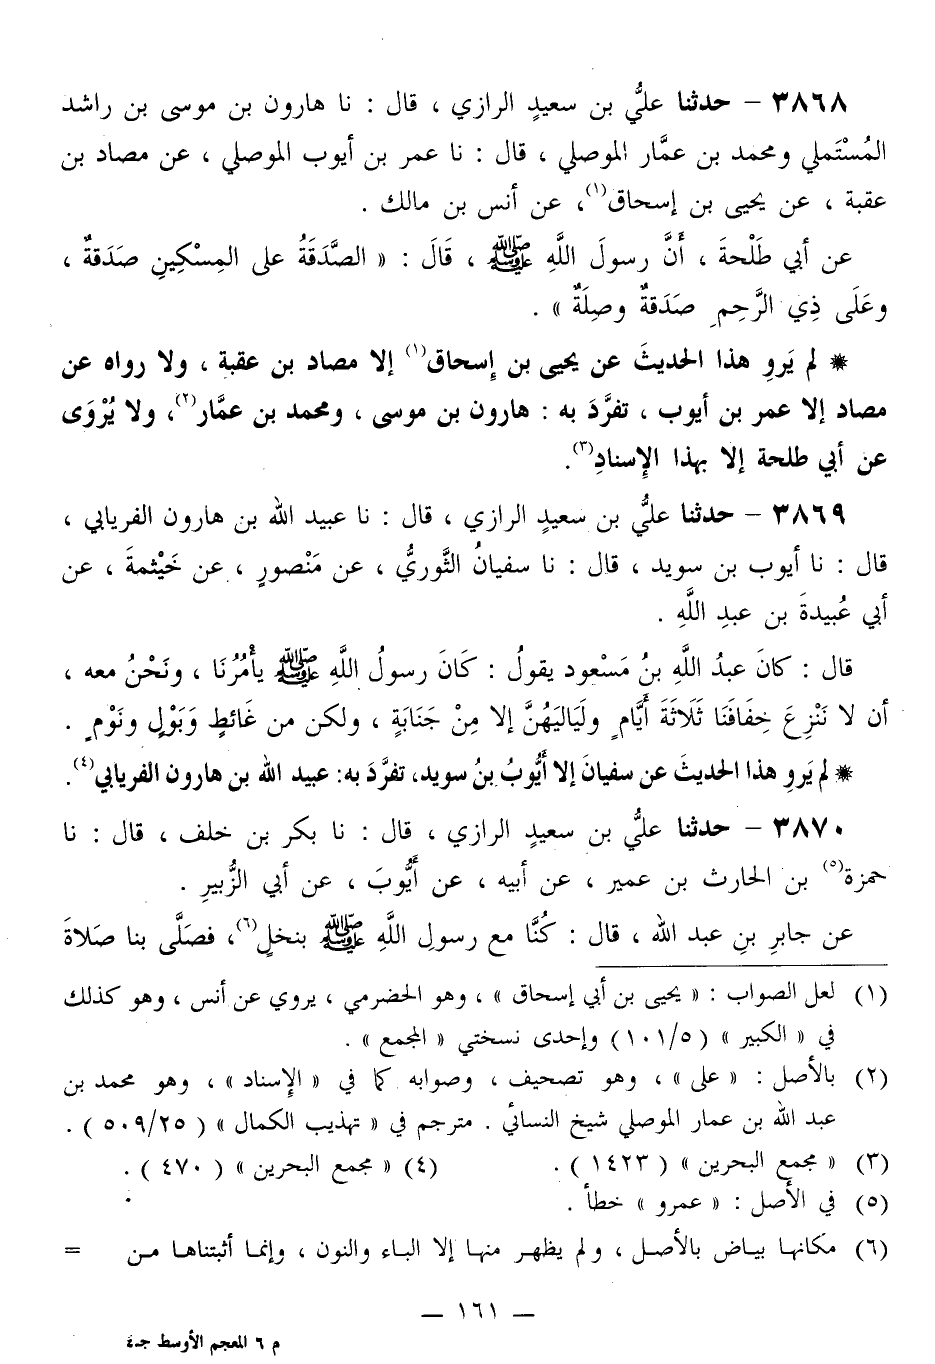 ٣٨٦٨ – حدثنا عليُّ بن سعيدٍ الرازي ، قال : نا هارون بن موسى بن راشد
المُسْتَملي ومحمد بن عمَّار الموصلي ، قال : نا عمر بن أيوب الموصلي ، عن مصاد بن
عقبة ، عن يحيى بن إسحاق(١)، عن أنس بن مالك .
عن أبي طَلْحةَ ، أَنَّ رسولَ اللَّهِ ﷺ ، قَالَ : « الصَّدَقَةُ على المِسْكِينِ صَدَقةٌ ،
وعَلَى ذِي الرَّحِمِ صَدَقةٌ وصِلَةٌ » .
* لم يَروِ هذا الحديثَ عن يحيى بن إِسحاق(١) إلا مصاد بن عقبة ، ولا رواه عن
مصاد إلا عمر بن أيوب ، تفرَّدَ به : هارون بن موسى ، ومحمد بن عمَّار(٢)، ولا يُرْوَى
عن أبي طلحة إلا بهذا الإِسنادِ(٣).
٣٨٦٩ – حدثنا عليُّ بن سعيدٍ الرازي ، قال : نا عبيد الله بن هارون الفريابي ،
قال : نا أيوب بن سويد ، قال : نا سفيانُ الثَّوريُّ ، عن مَنْصورٍ ، عن خَيْثمةَ ، عن
أبي عُبيدةَ بن عبدِ اللَّهِ .
قال : كانَ عبدُ اللَّهِ بنُ مَسْعود يقولُ : كَانَ رسولُ اللَّهِ ﷺ يأْمُرُنَا ، ونَحْنُ معه ،
أن لا نَنْزِعَ خِفَافَنَا ثَلَاثَةَ أَيَّامٍ ولَيَاليَهُنَّ إلا مِنْ جَنَابَةٍ ، ولكن من غَائطٍ وَبَوْلٍ ونَوْمٍ .
* لم يَروِ هذا الحديثَ عن سفيانَ إلا أَيُّوبُ بنُ سويد، تفرَّدَ به: عبيد الله بن هارون الفريابي(٤).
٣٨٧٠ – حدثنا عليُّ بن سعيدٍ الرازي ، قال : نا بكر بن خلف ، قال : نا
حمزة(٥) بن الحارث بن عمير ، عن أبيه ، عن أَيُّوبَ ، عن أبي الزُّبيرِ .
عن جابرِ بنِ عبد الله ، قال : كُنَّا مع رسولِ اللَّهِ ﷺ بنخلٍ(٦)، فصَلَّى بنا صَلاةَ
(١) لعل الصواب : « يحيى بن أبي إسحاق » ، وهو الحضرمي ، يروي عن أنس ، وهو كذلك
في « الكبير » (١٠١/٥) وإحدى نسختي « المجمع » .
(٢) بالأصل : « على » ، وهو تصحيف ، وصوابه كما في « الإسناد » ، وهو محمد بن
عبد الله بن عمار الموصلي شيخ النسائي . مترجم في « تهذيب الكمال » ( ٥٠٩/٢٥ ) .
(٣) « مجمع البحرين » ( ١٤٢٣ ) . (٤) « مجمع البحرين » ( ٤٧٠ ) .
(٥) في الأصل : « عمرو » خطأ .
(٦) مكانها بياض بالأصل ، ولم يظهر منها إلا الباء والنون ، وإنما أثبتناها من =
— ١٦١ —
م ٦ المعجم الأوسط جـ٤